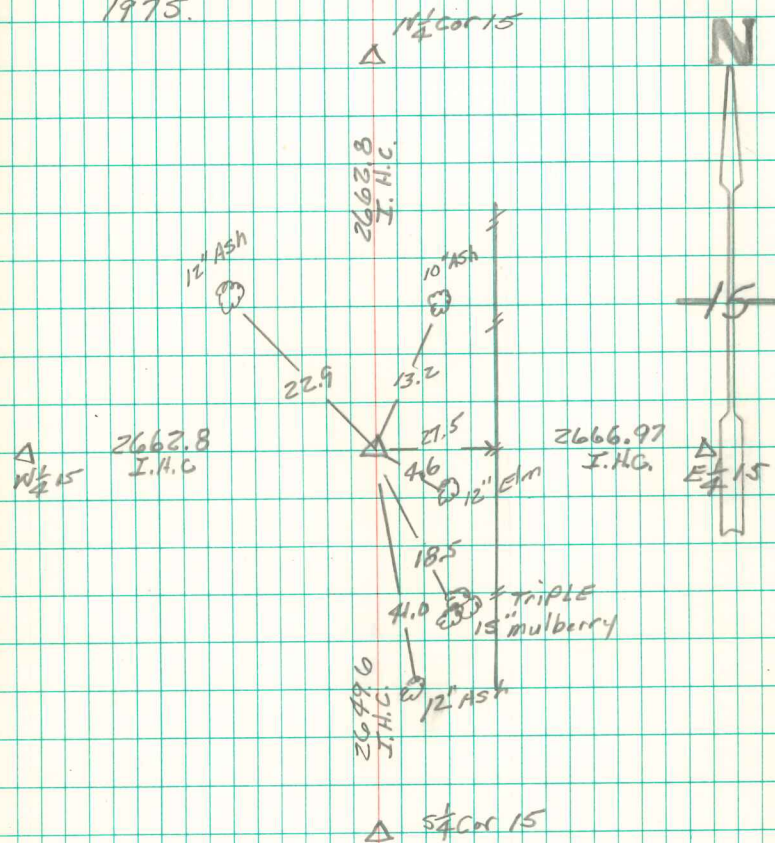 1975.
N 1/4 Cor 15
N
2662.8
I.H.C.
12" Ash
10" Ash
15
22.9
13.2
27.5
2662.8
I.H.C
2666.97
I.H.C.
W 1/4 15
E 1/4 15
4.6
12" Elm
18.5
41.0
TRIPLE
15" mulberry
12" Ash
2649.6
I.H.C.
S 1/4 Cor 15